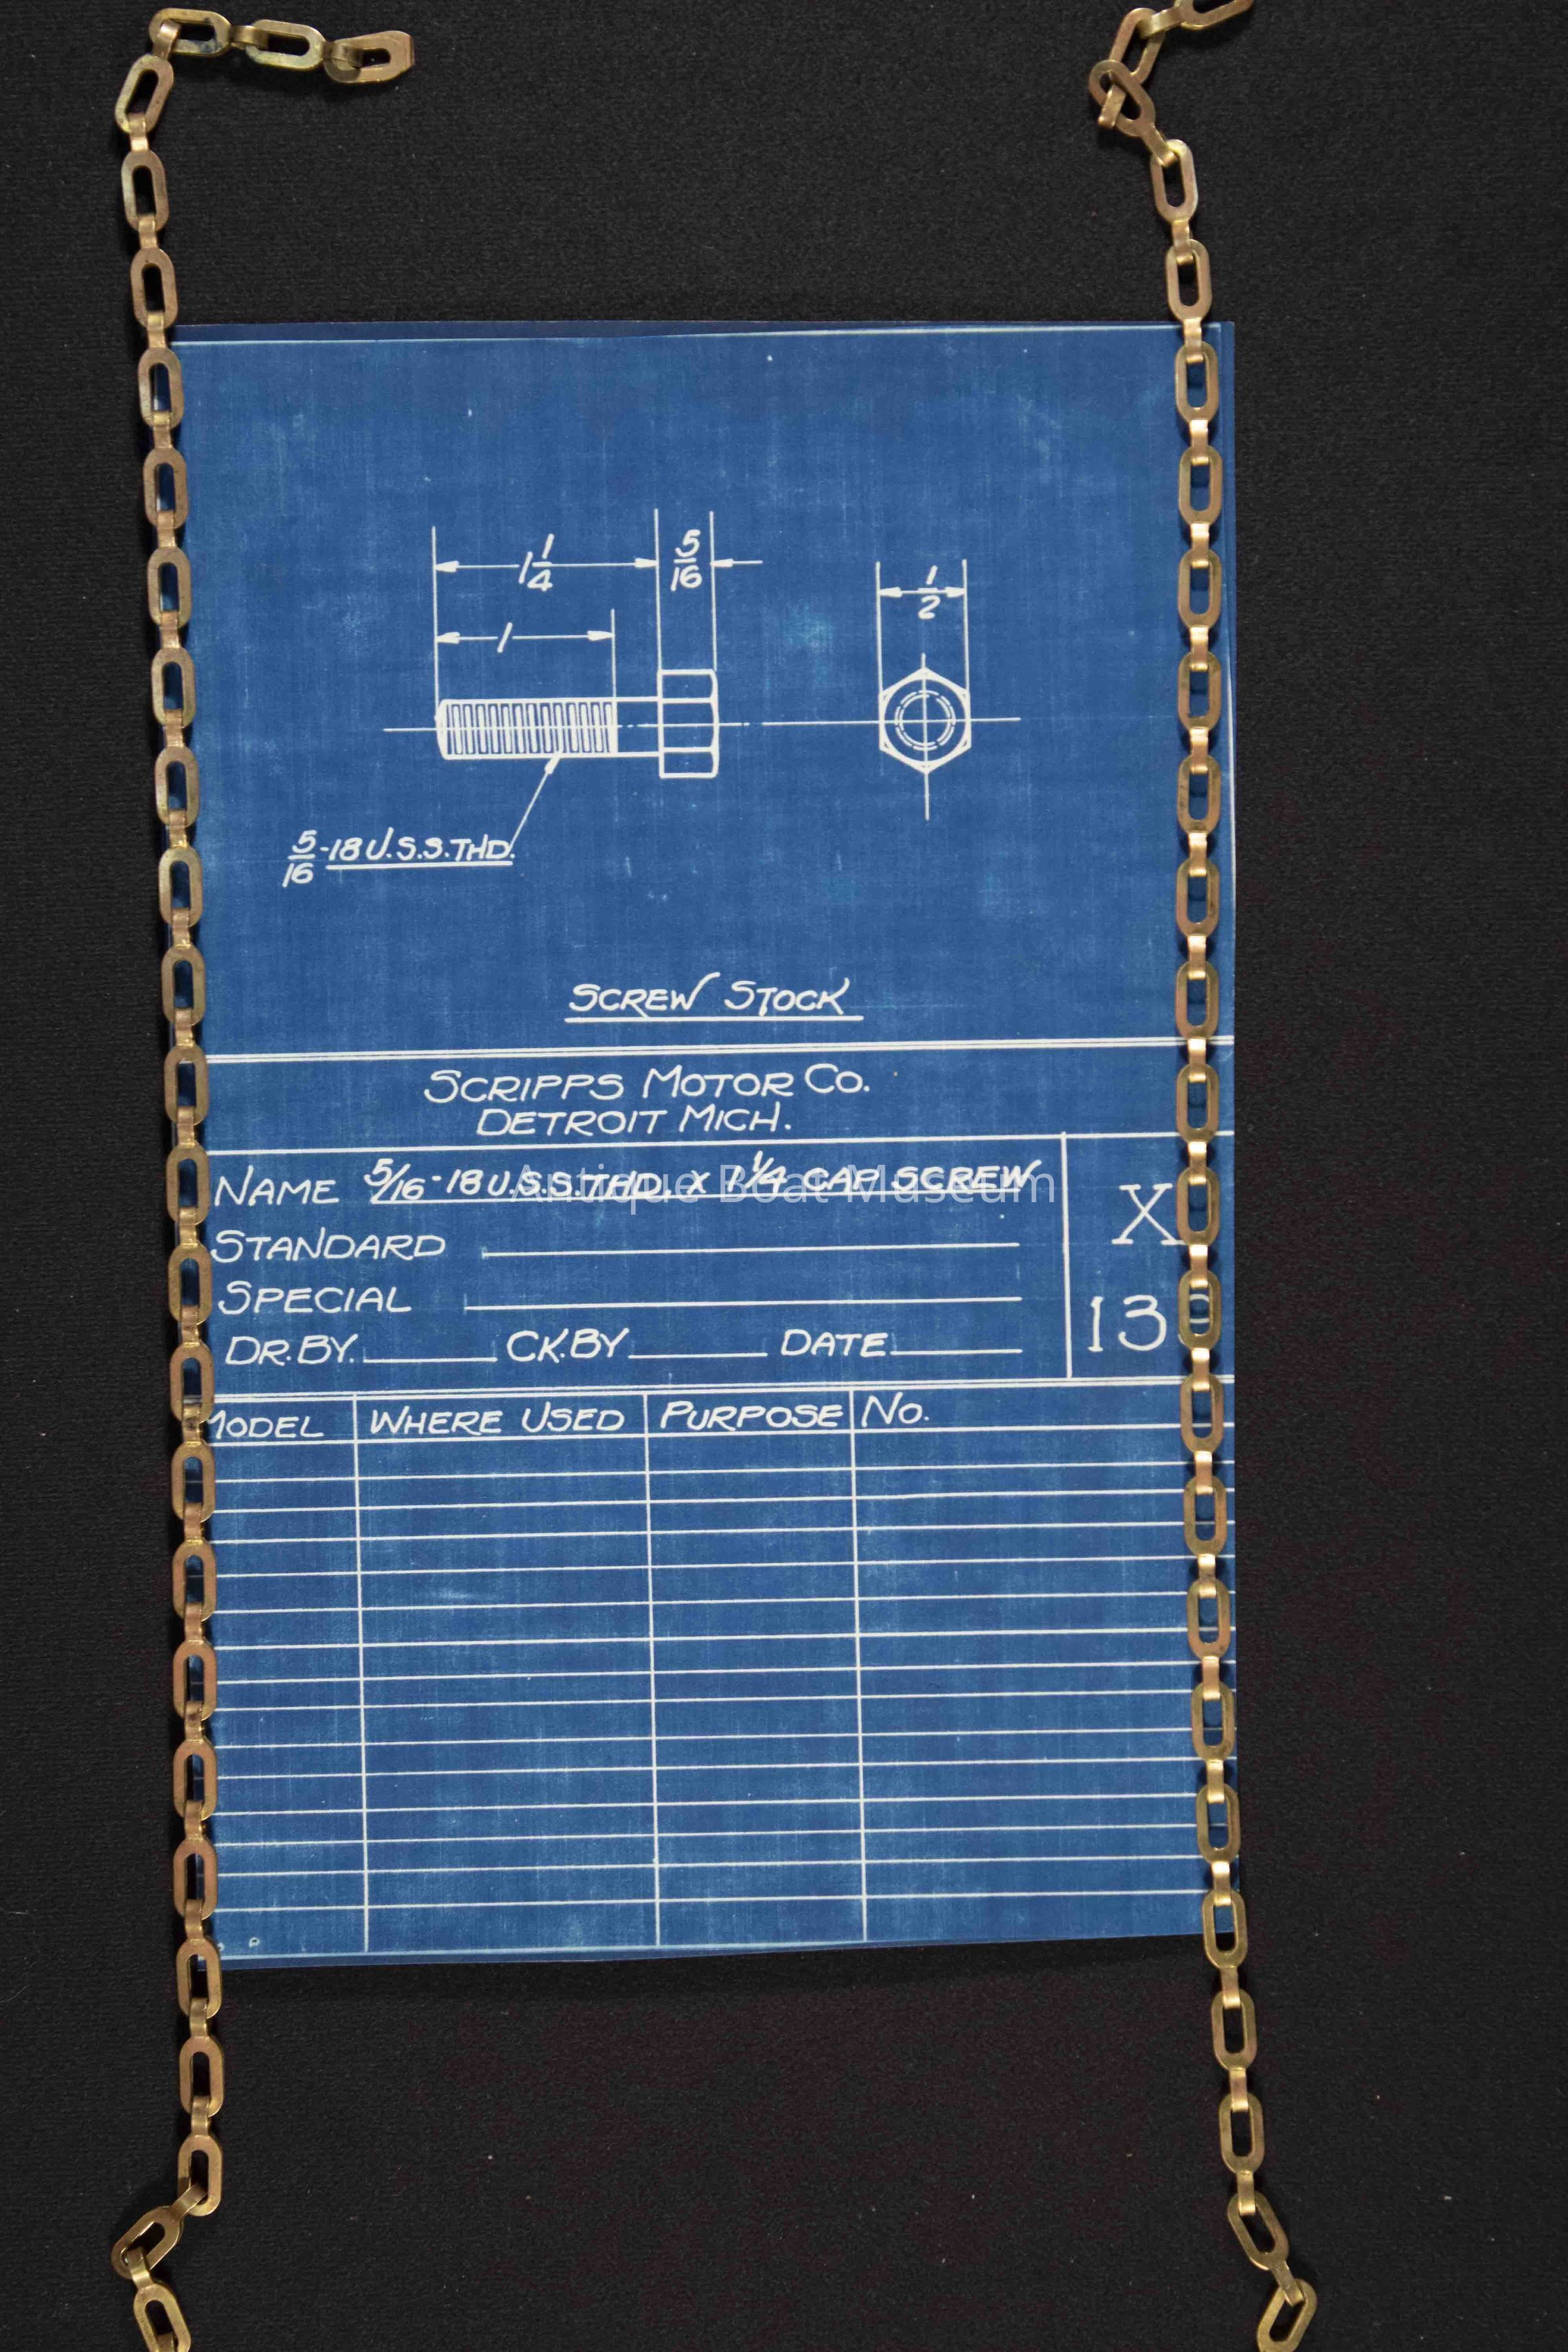 1 1/4
5/16
1/2
1
5/16-18 U.S.S. THD.
SCREW STOCK
SCRIPPS MOTOR CO.
DETROIT MICH.
NAME 5/16-18 U.S.S. THD. X 1 1/4 CAP SCREW
Antique Boat Museum
X
STANDARD
SPECIAL
13
DR. BY. CK. BY DATE
MODEL WHERE USED PURPOSE NO.